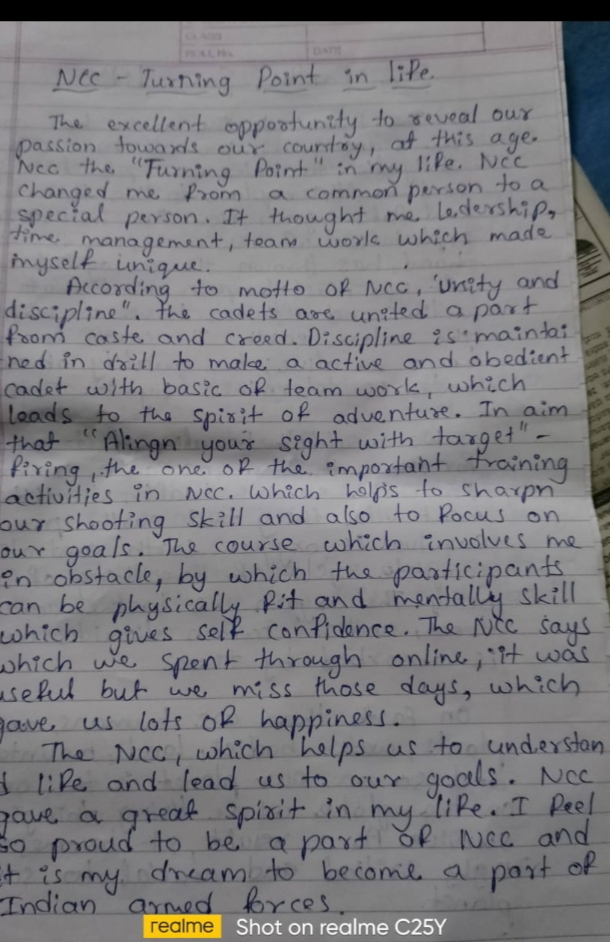 CLASS
ROLL No.
DATE
NCC - Turning Point in life.
The excellent opportunity to reveal our
passion towards our country, at this age.
NCC the "Turning Point" in my life. NCC
changed me from a common person to a
special person. It thought me Ledership,
time management, team work which made
myself unique.
According to motto of NCC, "unity and
discipline". the cadets are united a part
from caste and creed. Discipline is maintai
ned in drill to make a active and obedient
cadet with basic of team work, which
leads to the spirit of adventure. In aim
that "Alingn your sight with target" -
firing, the one of the important training
activities in NCC. Which helps to sharpn
our shooting skill and also to focus on
our goals. The course which involves me
in obstacle, by which the participants
can be physically fit and mentally skill
which gives self confidence. The NCC says
which we spent through online, it was
useful but we miss those days, which
gave us lots of happiness.
The NCC, which helps us to understan
d life and lead us to our goals. NCC
gave a great spirit in my life. I feel
so proud to be a part of NCC and
it is my dream to become a part of
Indian armed forces.
realme Shot on realme C25Y